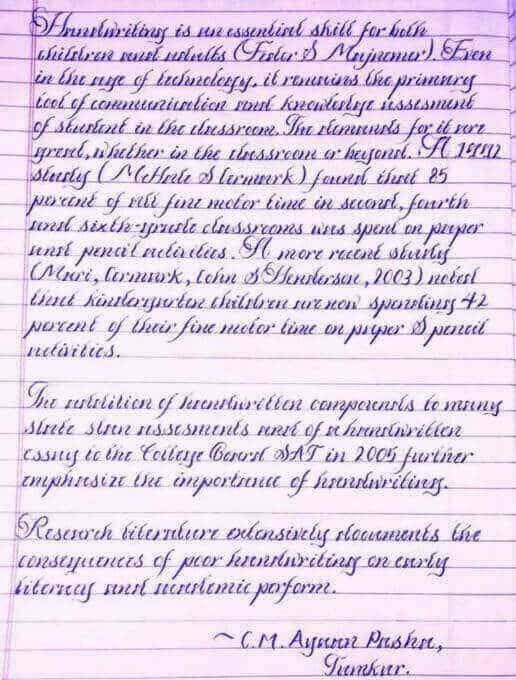 Handwriting is an essential skill for both
children and adults (Feder & Majnemer). Even
in the age of technology, it remains the primary
tool of communication and knowledge assesment
of student in the classroom. The demands for it are
great, whether in the classroom or beyond. A 1992
study (McHale & Cermark) found that 85
percent of all fine motor time in second, fourth
and sixth-grade classrooms was spent on paper
and pencil activities. A more recent study
(Marr, Cermark, Cohn & Henderson, 2003) noted
that kindergarten children are now spending 42
percent of their fine motor time on paper & pencil
activities.
The addition of handwritten components to many
state stan assesments and of a handwritten
essay to the College Board SAT in 2005 further
emphasize the importance of handwriting.
Research literature extensively documents the
consequences of poor handwriting on early
literacy and academic perform.
~C.M. Ayaan Pasha,
Tumkur.